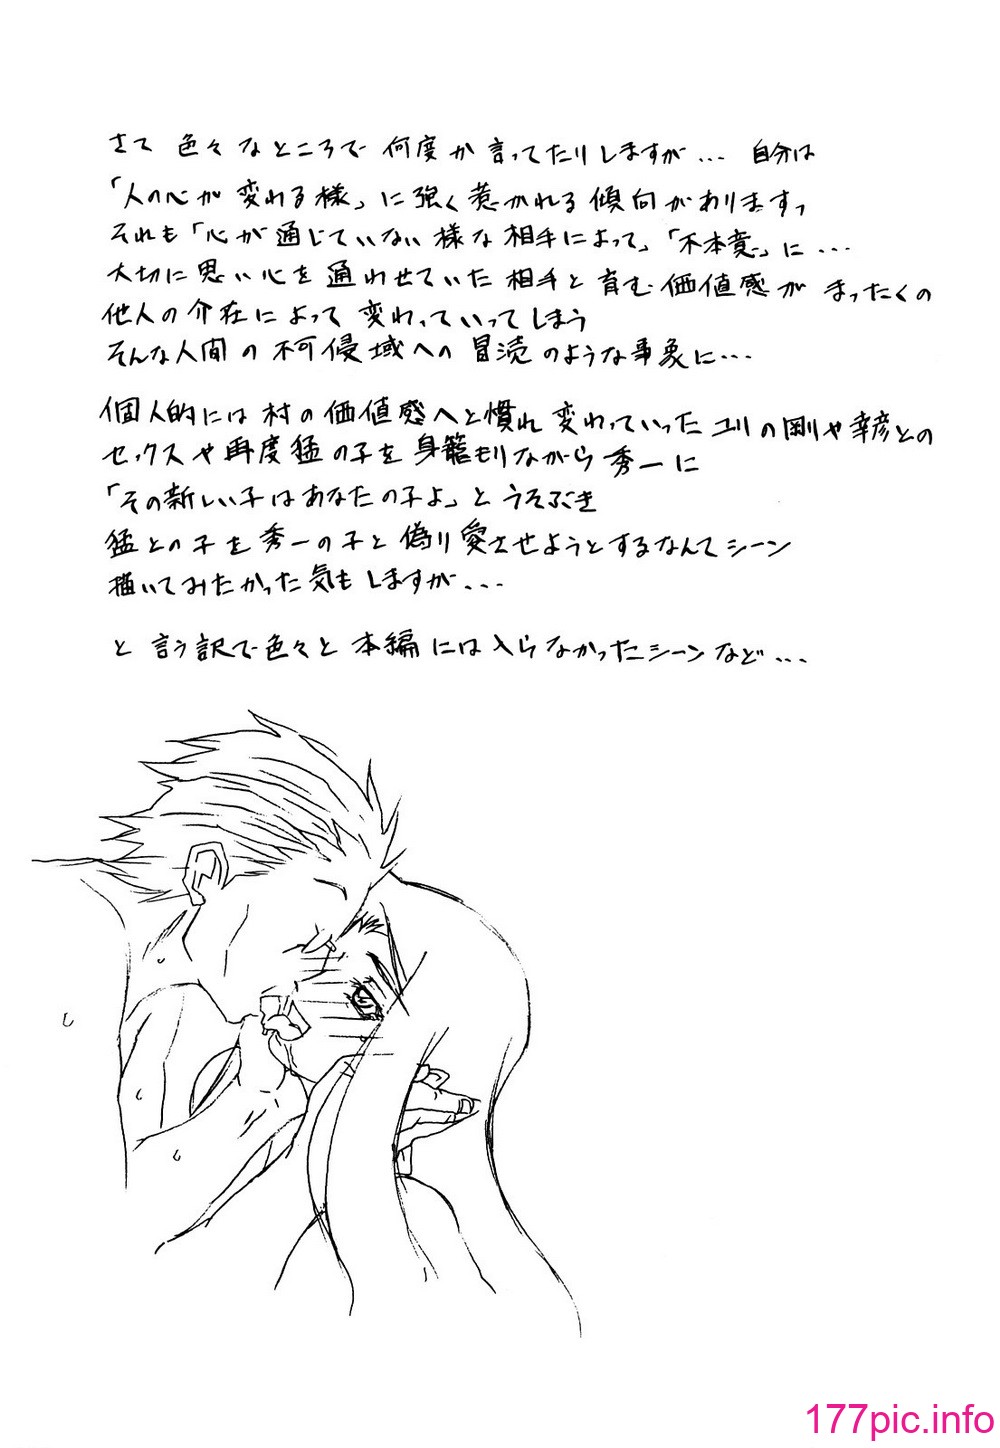 さて 色々なところで 何度か 言ってたりしますが… 自分は
「人の心が 変わる様」に強く惹かれる傾向がありますっ
それも「心が通じていない様な相手によって」「不本意」に…
大切に思い心を通わせていた相手と育む価値感が まったくの
他人の介在によって変わっていってしまう
そんな人間の不可侵域への冒涜のような事象に…
個人的には村の価値感へと慣れ変わっていったユリの剛や幸彦との
セックスや再度猛の子を身籠もりながら秀一に
「その新しい子はあなたの子よ」と うそぶき
猛との子を秀一の子と偽り愛させようとするなんてシーン
描いてみたかった気もしますが...
と 言う訳で色々と 本編には入らなかったシーンなど...
177pic.info